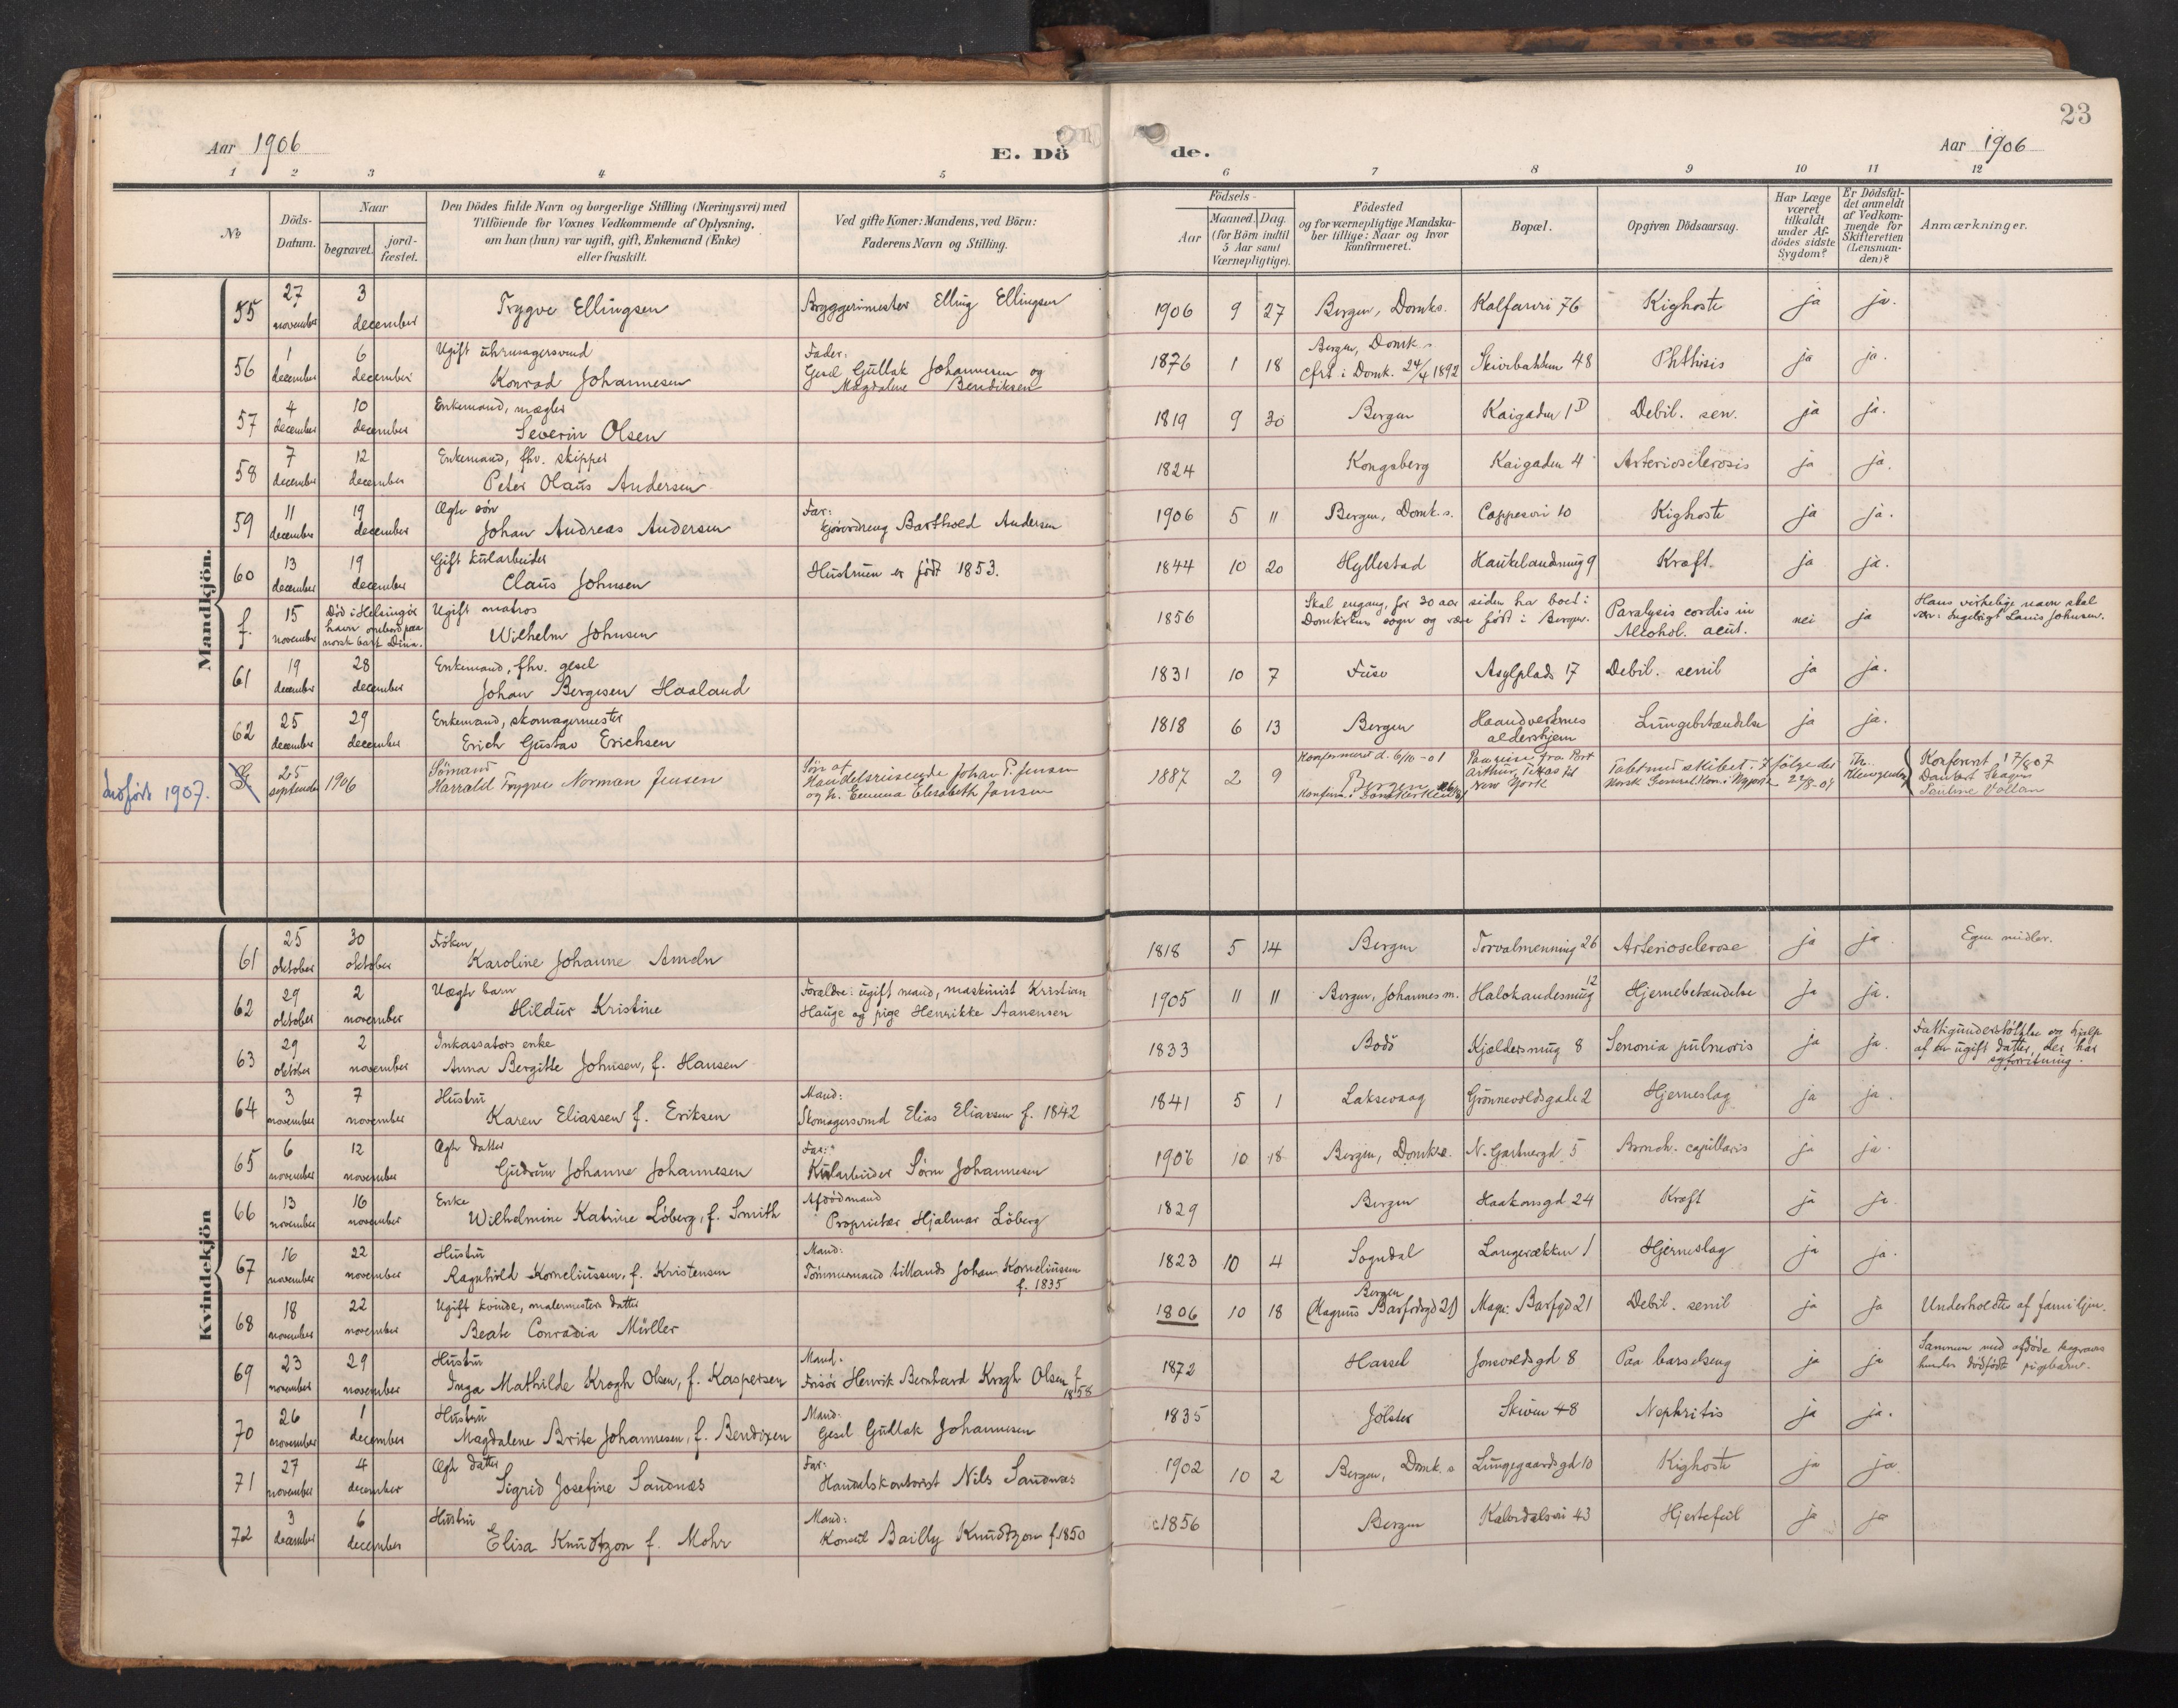 23
Aar 1906
E. Dö
de.
Aar 1906
1 2 3 4 5 6 7 8 9 10 11 12
No
Döds-Datum.
Naar
begravet.
jord-fæstet.
Den Dödes fulde Navn og borgerlige Stilling (Næringsvei) med
Tilföiende for Voxnes Vedkommende af Oplysning,
om han (hun) var ugift, gift, Enkemand (Enke)
eller fraskilt.
Ved gifte Koner: Mandens, ved Börn:
Faderens Navn og Stilling.
Födsels-
Aar
Maaned. Dag.
(for Börn indtil
5 Aar samt
Værnepligtige).
Födested
og for værnepligtige Mandska-
ber tillige: Naar og hvor
konfirmeret.
Bopæl.
Opgiven Dödsaarsag.
Har Læge
været
tilkaldt
under Af-
dödes sidste
Sygdom?
Er Dödsfal-
det anmeldt
af Vedkom-
mende for
Skifteretten
(Lensman-
den)?
Anmærkninger.
Mandkjön.
55 27 november 3 december Trygve Ellingsen Bryggerimester Elling Ellingsen 1906 9 27 Bergen, Domks. Kalfarvei 76 Kighoste ja ja.
56 1 december 6 december Ugift uhrmagersvend
Konrad Johannesen Fader: Gesel Gullak Johannesen og Magdalene Bendiksen 1876 1 18 Bergen, Domk. s cfrt. i Domk. 24/4 1892 Skivebakken 48 Phthisis ja ja.
57 4 december 10 december Enkemand, mægler
Severin Olsen 1819 9 30 Bergen Kaigaden 1D Debil. sen. ja ja.
58 7 december 12 december Enkemand, fhv. skipper
Peter Olaus Andersen 1824 Kongsberg Kaigaden 4 Arteriosclerosis ja ja.
59 11 december 19 december Ægte søn
Johan Andreas Andersen Far: Barthold Andersen 1906 5 11 Bergen, Domk. s. Cappesvei 10 Kighoste ja ja.
60 13 december 19 december Gift kularbeider
Claus Johnsen Hustruen er født 1853. 1844 10 20 Hyllestad Haukelandsmug 9 Kræft. ja ja.
f. 15 november Död i Helsingör havn ombord paa norsk bark Dina. Ugift matros
Wilhelm Johnsen 1856 Skal engang, for 30 aar siden ha boet i Domkirkens sogn og være født i Bergen. Paralysis cordis in Alcohol. acut. nei ja Hans virkelige navn skal være: Ingebrigt Louis Johnsen.
61 19 december 28 december Enkemand, fhv. gesel
Johan Bergesen Haaland 1831 10 7 Fuse Asylplads 17 Debil. senil ja ja.
62 25 december 29 december Enkemand, skomagermester
Erich Gustav Erichsen 1818 6 13 Bergen Haandverkernes aldershjem Lungebetændelse ja ja.
Indført 1907. 25 september 1906 Sömand
Harrald Trygve Norman Jensen Søn af Handelsreisende Johan P. Jensen og h. Emma Elesabeth Jansen 1887 2 9 Konfirmeret d. 6/10-01 Bergen Konfirm. i Domkirken Paa reise fra Port Arthur, Texas til New York Tabt med skibet - Ifølge det Norsk General Kon. i Nyport 22/8-07 Konferert 17/8 07
Kvindekjön
61 25 oktober 30 oktober Fröken
Karoline Johanne Ameln 1818 5 14 Bergen Torvalmenning 26 Arteriosclerose ja ja. Egne midler.
62 29 oktober 2 november Uægte barn
Hildur Kristine Forældre: ugift mand, maskinist Kristian Hauge og pige Henrikke Aanensen 1905 11 11 Bergen, Johannes m. Halokandesmug 12 Hjernebetændelse ja ja.
63 29 oktober 2 november Inkassators enke
Anna Bergitte Johnsen, f. Hansen 1833 Bodö Kjeldersmug 8 pulmonis ja ja. Fattigunderstöttelse og hjelp af en ugift datter, der har syforretning.
64 3 november 7 november Hustru
Karen Eliassen f. Eriksen Mand: Skomagersvend Elias Eliassen f. 1842 1841 5 1 Laksevaag Grönnevoldsgade 2 Hjerneslag ja ja.
65 6 november 12 november Ægte datter
Gudrun Johanne Johannesen Far: Kularbeider Sörn Johannesen 1906 10 18 Bergen, Domks. N. Gartnergd. 5 Bronch. capillaris ja ja.
66 13 november 16 november Enke
Wilhelmine Katrine Löberg, f. Smith Afdöd mand Proprietær Hjalmar Löberg 1829 Bergen Haakonsgd 24 Kræft ja ja.
67 16 november 22 november Hustru
Ragnhild Korneliussen, f. Kristensen Mand: Tömmermand tillands Johan Korneliusen f. 1835 1823 10 4 Sogndal Langerækken 1 Hjerneslag ja ja.
68 18 november 22 november Ugift kvinde, malermesters datter
Beate Conradia Müller 1806 10 18 Bergen (Magnus Barfodsgd 21) Magn. Barfgd 21 Debil. senil ja ja Underholdtes af familjen.
69 23 november 29 november Hustru
Inga Mathilde Krogh Olsen, f. Kaspersen Mand: Frisör Henrik Bernhard Krogh Olsen f. 1858 1872 Hassel Jonsvoldsgd 8 Paa barselseng ja ja Sammen med afdöde begraves hendes dödfödte pigebarn.
70 26 november 1 december Hustru
Magdalene Brite Johannesen, f. Bendixen Mand: Gesel Gullak Johannesen 1835 Jölster Skiven 48 Nephritis ja ja.
71 27 november 4 december Ægte datter
Sigrid Josefine Sandnæs Far: Handelskontorist Nils Sandnæs 1902 10 2 Bergen, Domk. s Lungegaardsgd 10 Kighoste ja ja.
72 3 december 6 december Hustru
Elisa Knudtzon f. Mohr Mand: Konsul Bailly Knudtzon f. 1850 1856 Bergen Kalvedalsvei 43 Hjertefeil ja ja